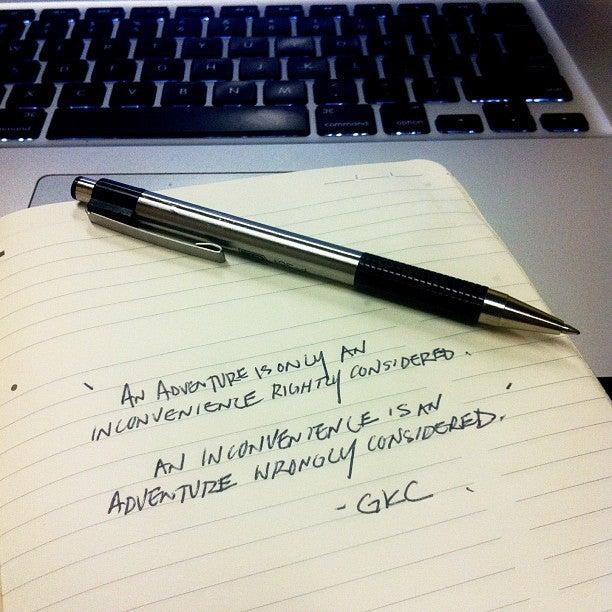 Y U
X C V B N M
command command option
' AN ADVENTURE IS ONLY AN
INCONVENIENCE RIGHTLY CONSIDERED.
AN INCONVENIENCE IS AN '
ADVENTURE WRONGLY CONSIDERED.
- GKC